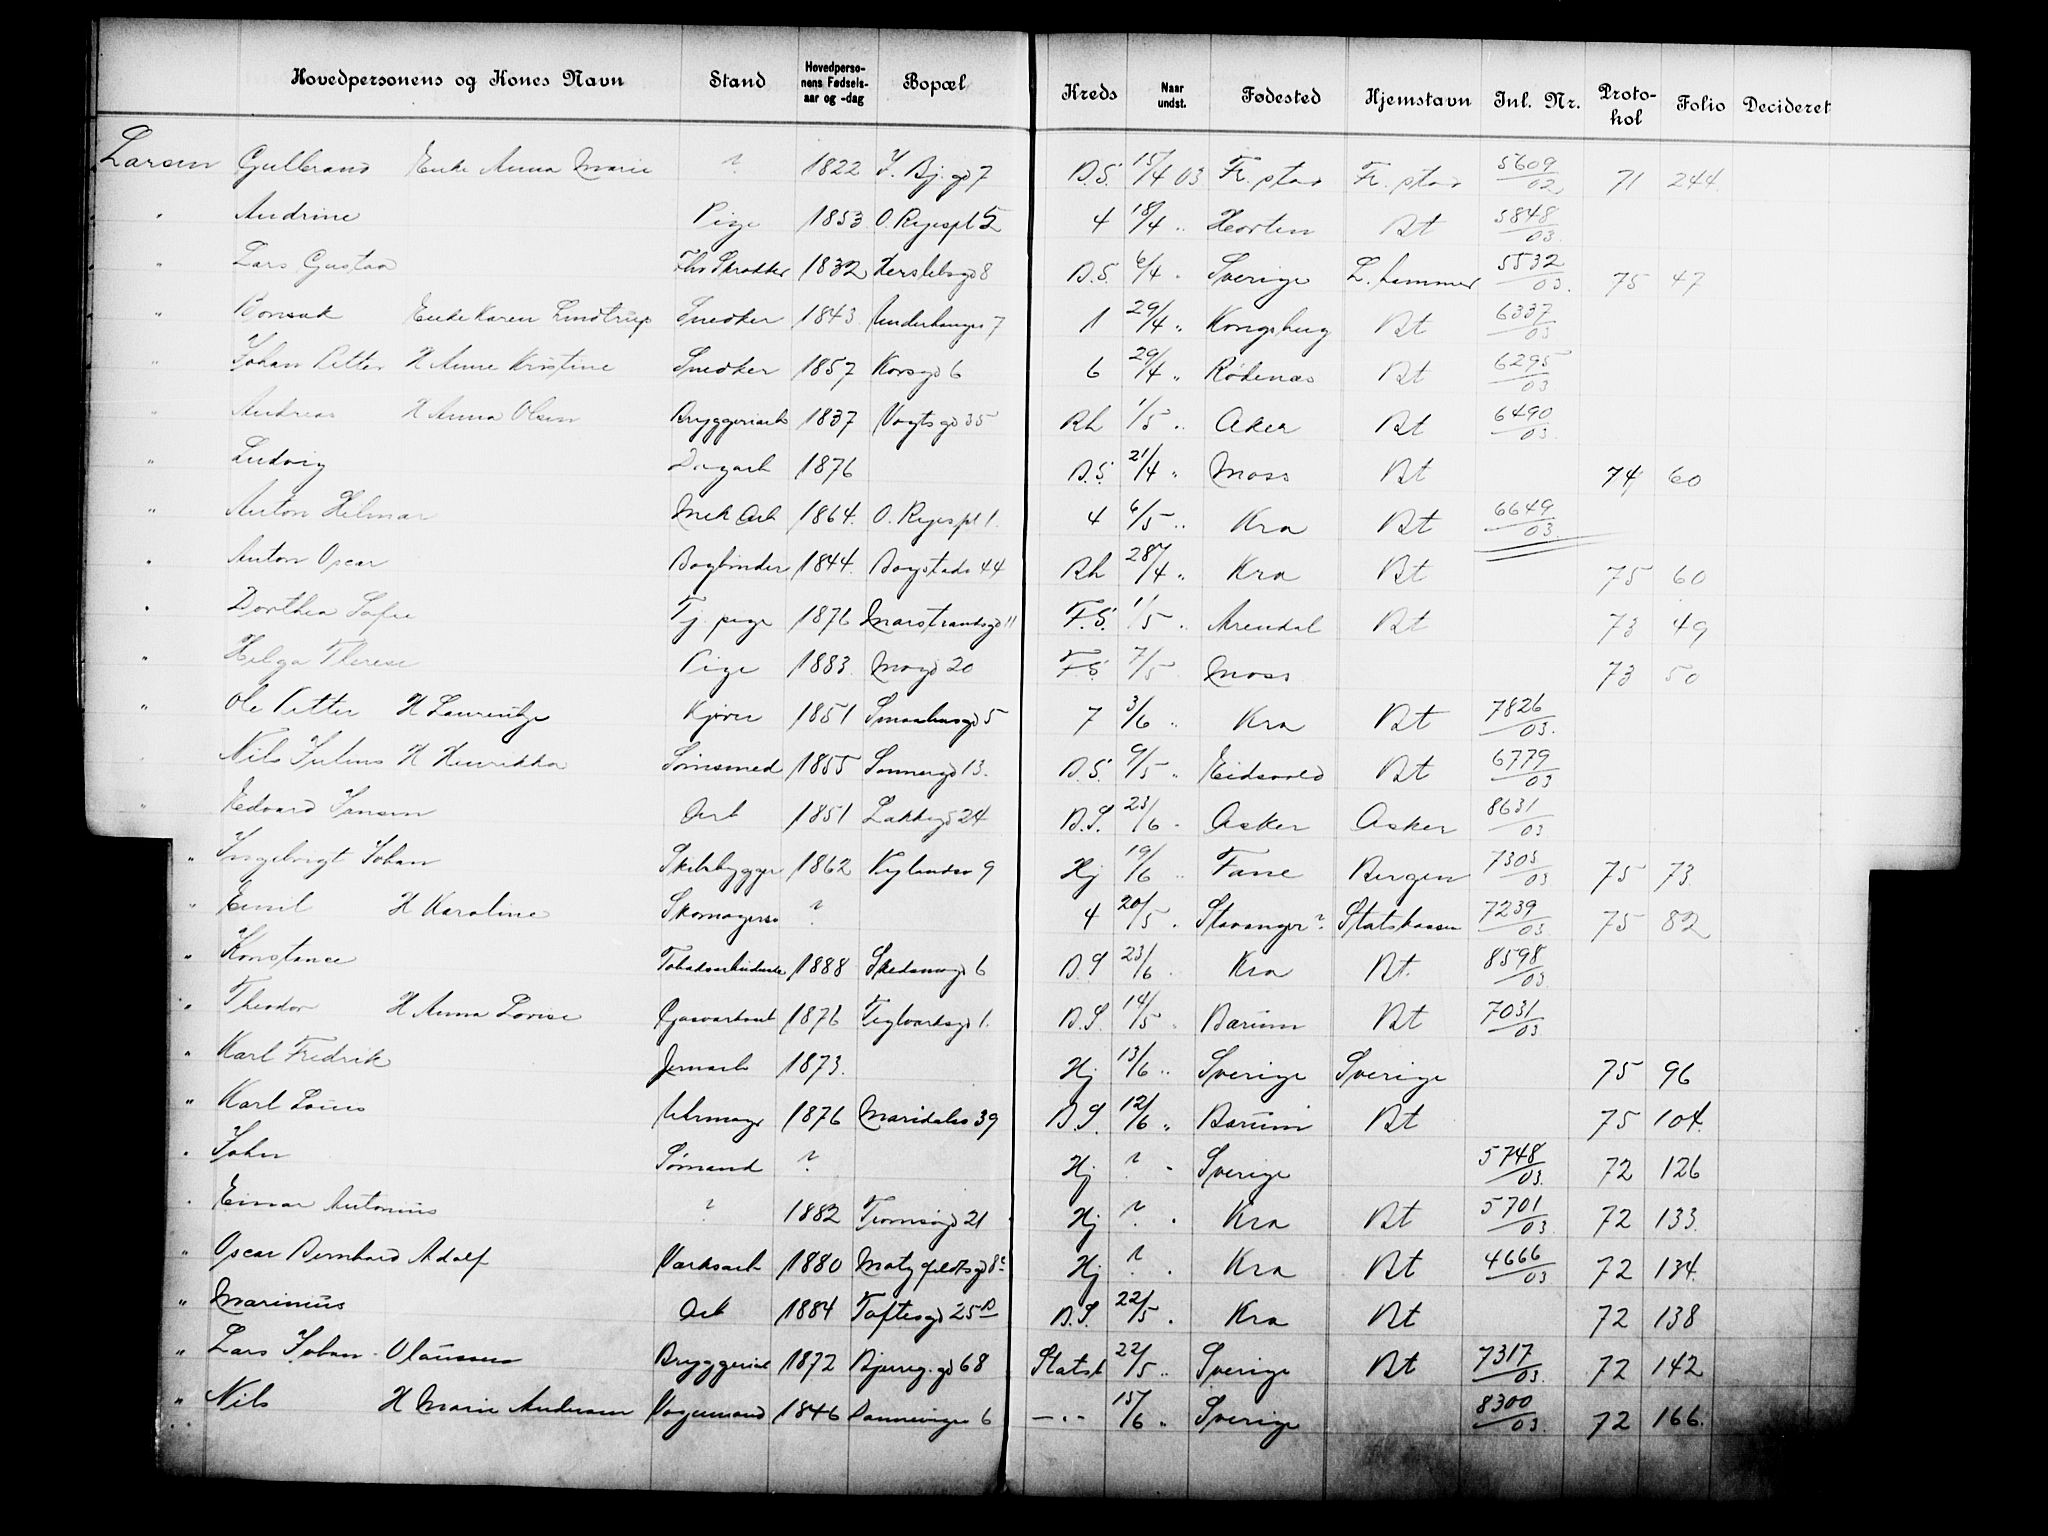 Hovedpersonens og Kones Navn Stand Hovedperso-nens Fødsels-aar og -dag Bopæl Kreds Naar undst. Fødested Hjemstavn Inl. Nr. Proto-kol Folio Decideret
Larsen Gulbrand Enke Anna Marie ? 1822 Y. Bj. gd 7 B.S. 15/4 03 Fr. stad Fr. stad 5609/02 71 244
" Andrine Pige 1853 O. Ryespl 5 4 18/4 " Horten Bt 5848/03
" Lars Gustav 1832 Herslebsgd 8 B.S. 6/4 " Sverige L. hammer 5532/03. 75 47
" Bonsak Enke Karen Lindtrup Snedker 1843 7 1 29/4 " Kongsberg Bt 6337/03
" Johan Petter H Anne Kristine Snedker 1857 Korsgd 6 6 29/4 " Rødenæs Bt 6295/03
" Andreas H Anna Olsen Bryggeriarb 1837 Vogtsgd 35 Rh 1/5 " Aker Bt 6490/03
" Ludvig Dagarb 1876 B.S. 21/4 " Moss Bt 74 60
" Anton Helmar Mek Arb 1864. O. Ryespl 1. 4 6/5 " Kra Bt 6649/03.
" Anton Oscar Bogbinder 1844. Bogstadv 44 Rh 28/4 " Kra Bt 75 60
" Dorthea Sofie Tj. pige 1876 Marstrandsgd 11 F.S. 1/5 " Arendal Bt 73 49
" Helga Therese Pige 1883 Mogd 20 F.S. 7/5 Moss 73 50
" Ole Petter H Laurentze Kjører 1851 Smaalensgd 5 7 3/6 " Kra Bt 7826/03.
" Nils Julius H Henrikka 1855 Sannergd 13. B.S. 9/5 " Eidsvold Bt 6779/03
" Edvard Jensen Arb 1851 Lakkegd 24 B.S. 23/6 " Asker Asker 8631/03
" Ingebrigt Johan Skibsbygger 1862 9 Hj 19/6 " Fane Bergen 7305/03 75 73
" Emil H Karoline Skomagersv ? 4 20/5 " Stavanger? Statskassen 7239/03 75 82
" Konstance Tobaksarbeiderske 1888 Skedsmogd 6 B.S 23/6 " Kra Bt. 8598/03.
" Theodor H Anna Lovise Gasværksarb 1876 Teglverksgd 1. B.S. 14/5 " Bærum Bt 7031/03
" Karl Fredrik Jernarb 1873. Hj 13/6 " Sverige Sverige 75 96
" Karl Louis Uhrmagr 1876 Maridalsv 39 B.S. 12/6 " Bærum Bt 75 104.
" John Sømand ? Hj ? " Sverige 5748/03. 72 126
" Einar Antonius ? 1882 Tromsøgd 21 Hj ? " Kra Bt 5701/03. 72 133.
" Oscar Bernhard Adolf Værksarb 1880 Motzfeldtsgd 8c Hj ? " Kra Bt 4666/03 72 134.
" Marinius Arb 1884 Toftesgd 25 B B.S. 22/5 " Kra Bt 72 138
" Lars Johan Olaussen Bryggeriarb 1872 Bjerreg. gd 68 Statsk 22/5 " Sverige Bt 7317/03. 72 142
" Nils H Marie Andersen Vognmand 1846 Dannevigsv 6 — " — 15/6 " Sverige 8300/03. 72 166.